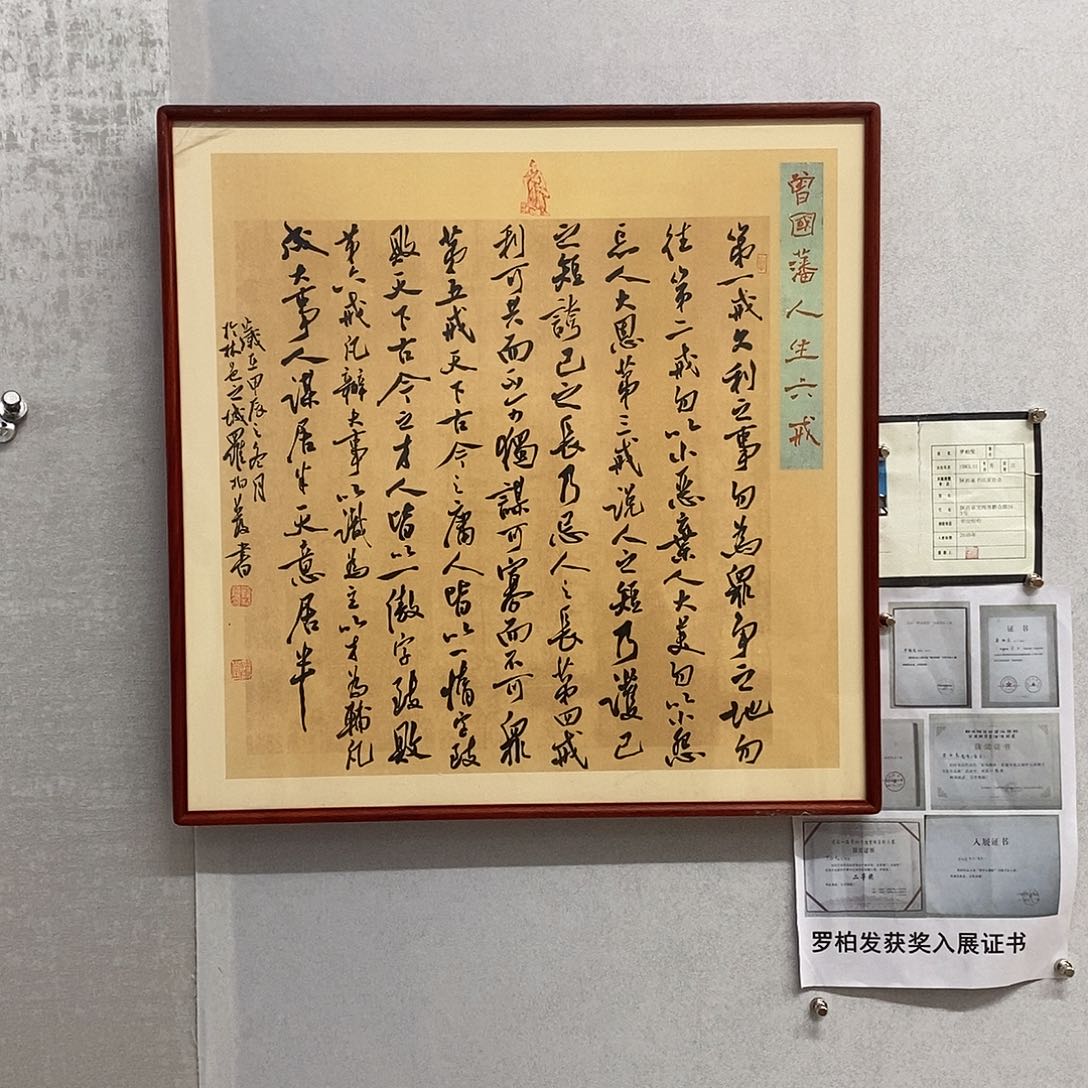 曾國藩人生六戒
第一戒久利之事勿為眾争之地勿
往第二戒勿以小惡棄人大美勿以小怨
忘人大恩第三戒说人之短乃護己
之短誇己之長乃忌人之長第四戒
利可共而不可獨謀可寡而不可眾
第五戒天下古今之庸人皆以一惰字致
敗天下古今之才人皆以一傲字致敗
第六戒凡辦大事以識為主以才為輔凡
成大事人謀居半天意居半
歲在甲辰之冬月
於林邑之城羅柏發書
证书
获奖证书
二等奖
入展证书
罗柏发获奖入展证书